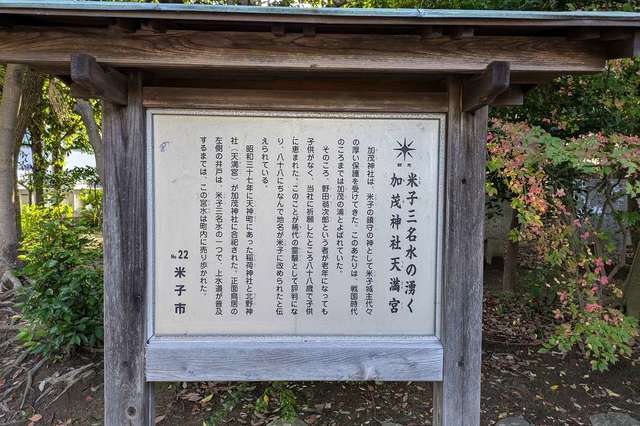 米子三名水の湧く
加茂神社天満宮
加茂神社は、米子の鎮守の神として米子城主代々
の厚い保護を受けてきた。このあたりは、戦国時代
のころまでは加茂の浦とよばれていた。
そのころ、野田翁次郎という者が老年になっても
子供がなく、当社に祈願したところ八十八歳で子供
に恵まれた。このことが稀代の霊験として評判にな
り、八十八にちなんで地名が米子に改められたと伝
えられている。
昭和三十七年に天神町にあった稲荷神社と北野神
社（天満宮）が加茂神社に合祀された。正面鳥居の
左側の井戸は、米子三名水の一つで、上水道が普及
するまでは、この宮水は町内に売り歩かれた。
№22
米子市